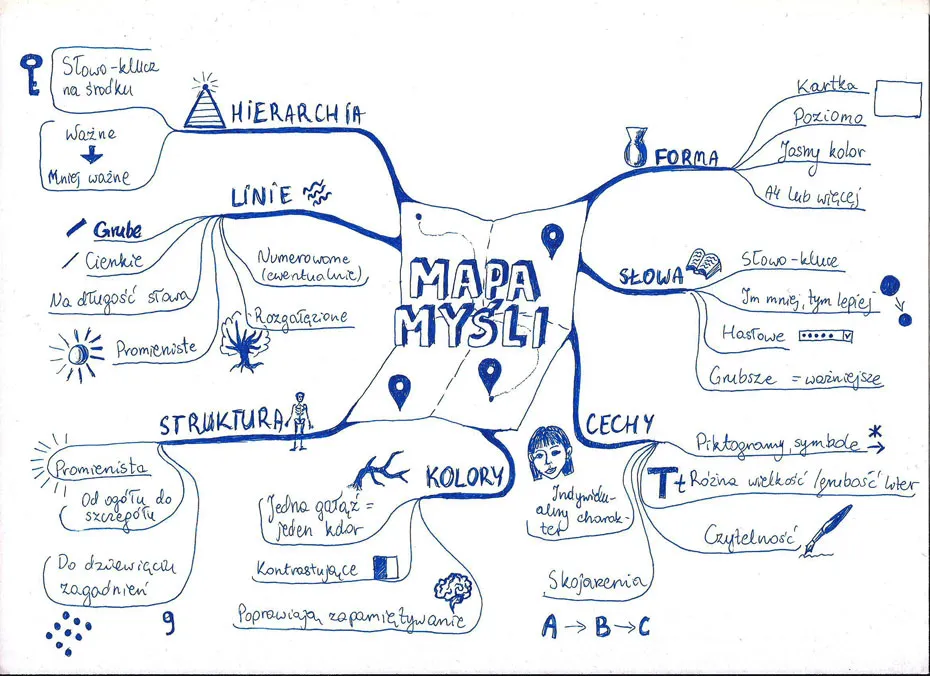 MAPA
MYŚLI
HIERARCHIA
Słowo-klucz
na środku
Ważne
Mniej ważne
LINIE
Grube
Cienkie
Na długość słowa
Promieniste
Numerowane
(ewentualnie)
Rozgałęzione
STRUKTURA
Promienista
Od ogółu do
szczegółu
Do dziewięciu
zagadnień
9
KOLORY
Jedna gałąź =
jeden kolor
Kontrastujące
Poprawiają zapamiętywanie
FORMA
Kartka
Poziomo
Jasny kolor
A4 lub więcej
SŁOWA
Słowo-klucz
Im mniej, tym lepiej
Hasłowe
Grubsze = ważniejsze
CECHY
Piktogramy, symbole
T t Różna wielkość/grubość liter
Czytelność
Indywidu-
alny charak-
ter
Skojarzenia
A → B → C